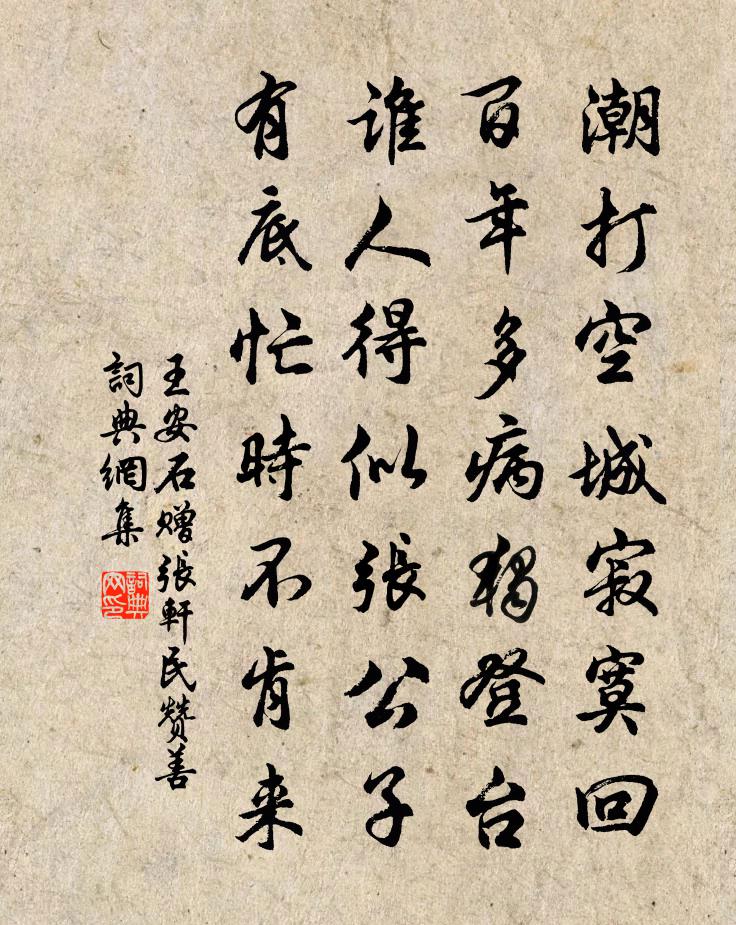 潮打空城寂寞回
百年多病獨登台
谁人得似張公子
有底忙時不肯来
王安石赠張軒民赞善
詞典網集
詞典网印